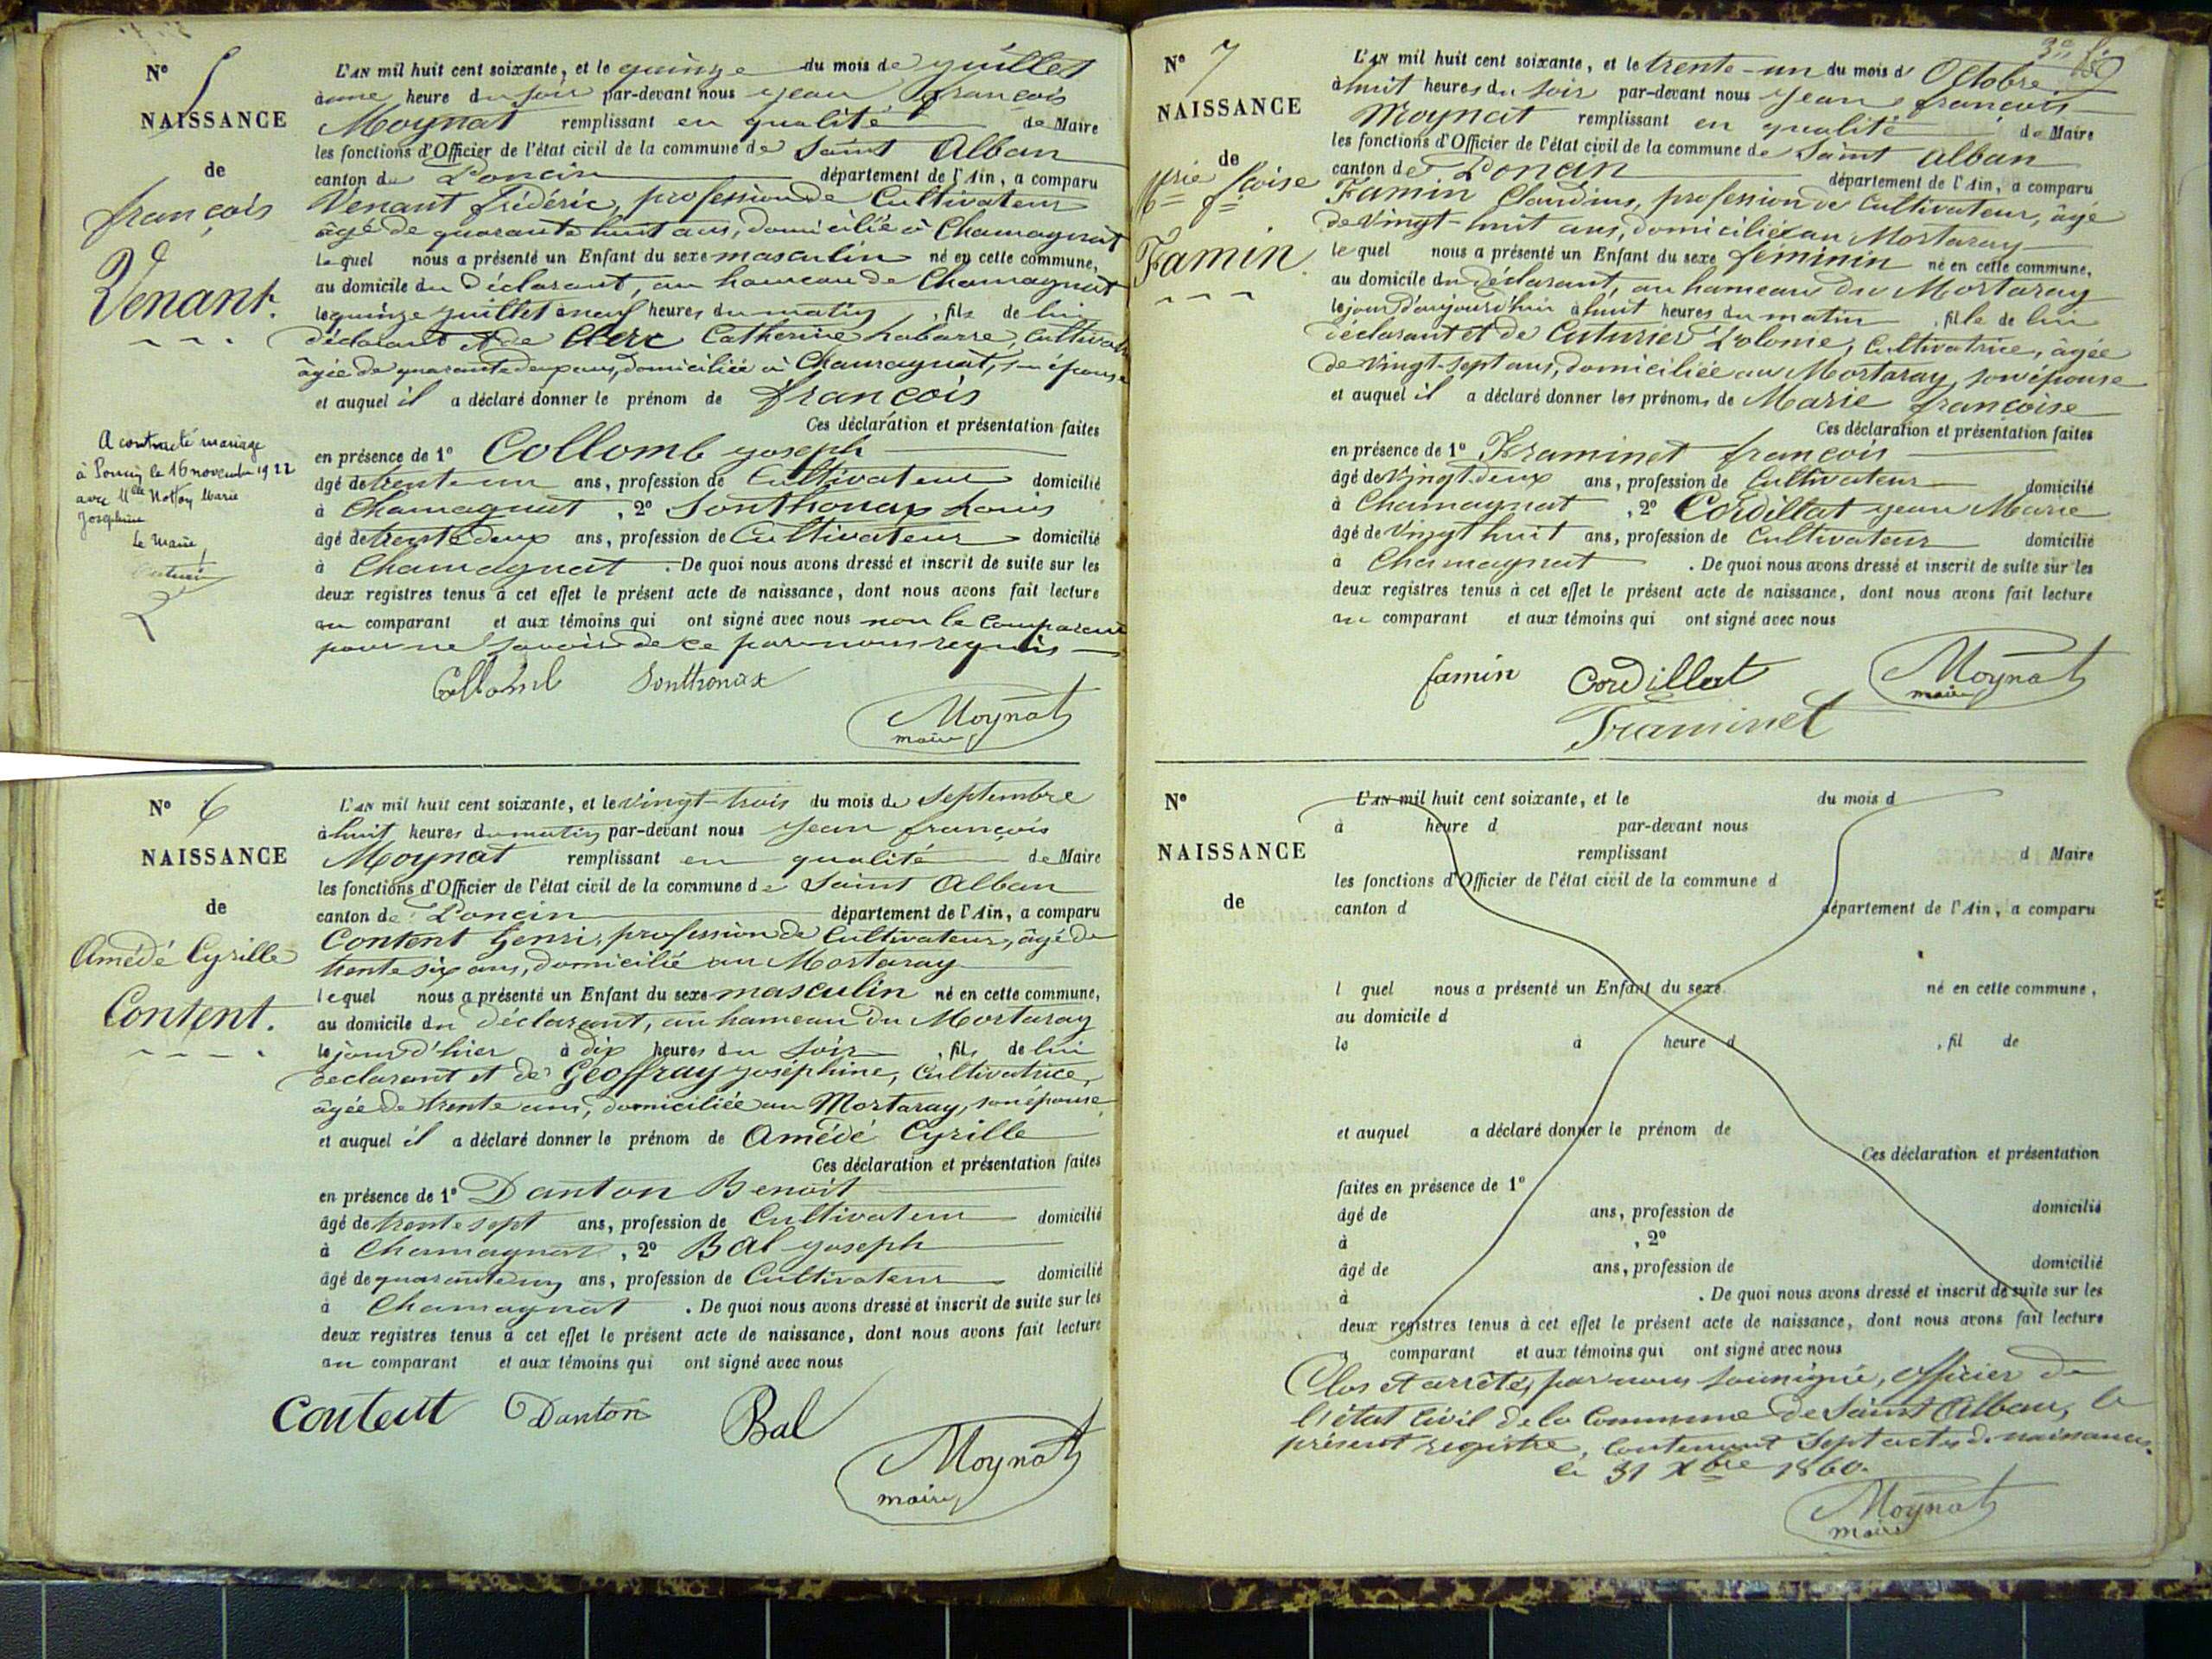 N° 5
NAISSANCE
de
françois
Venant.
A contracté mariage
à Poncin le 16 novembre 1922
avec Mlle Marie
Joséphine
Le Maire,
L'AN mil huit cent soixante, et le quinze du mois de juillet
à une heure du soir par-devant nous jean françois
Moynat remplissant en qualité de Maire
les fonctions d'Officier de l'état civil de la commune de Saint Alban
canton de Poncin département de l'Ain, a comparu
Venant frédéric, profession de Cultivateur
âgé de quarante huit ans, domicilié à Chamagnat
lequel nous a présenté un Enfant du sexe masculin né en cette commune,
au domicile du Déclarant, au hameau de Chamagnat
le quinze juillet à neuf heures du matin, fils de lui
déclarant et de Clerc Catherine Labarre, Cultivatr
âgée de quarante deux ans, domiciliée à Chamagnat, son épouse
et auquel il a déclaré donner le prénom de françois
Ces déclaration et présentation faites
en présence de 1° Collomb joseph
âgé de trente un ans, profession de Cultivateur domicilié
à Chamagnat, 2° Sonthonax Louis
âgé de trente deux ans, profession de Cultivateur domicilié
à Chamagnat. De quoi nous avons dressé et inscrit de suite sur les
deux registres tenus à cet effet le présent acte de naissance, dont nous avons fait lecture
au comparant et aux témoins qui ont signé avec nous non le Comparant
pour ne savoir de ce par nous requis
Collomb Sonthonax
Moynat
maire
N° 6
NAISSANCE
de
Amédé Cyrille
Content.
L'AN mil huit cent soixante, et le vingt-trois du mois de Septembre
à huit heures du matin par-devant nous jean françois
Moynat remplissant en qualité de Maire
les fonctions d'Officier de l'état civil de la commune de Saint Alban
canton de Poncin département de l'Ain, a comparu
Content henri, profession de Cultivateur, âgé de
trente six ans, domicilié au Mortaray
lequel nous a présenté un Enfant du sexe masculin né en cette commune,
au domicile du déclarant, au hameau du Mortaray
le jour d'hier à dix heures du soir, fils de lui
declarant et de Geoffray joséphine, Cultivatrice,
âgée de trente ans, domiciliée au Mortaray, son épouse
et auquel il a déclaré donner le prénom de Amédé Cyrille
Ces déclaration et présentation faites
en présence de 1° Danton Benoit
âgé de trente sept ans, profession de Cultivateur domicilié
à Chamagnat, 2° Bal joseph
âgé de quarante un ans, profession de Cultivateur domicilié
à Chamagnat. De quoi nous avons dressé et inscrit de suite sur les
deux registres tenus à cet effet le présent acte de naissance, dont nous avons fait lecture
au comparant et aux témoins qui ont signé avec nous
Content Danton Bal
Moynat
maire
N° 7
NAISSANCE
de
Mrie fçoise
Famin.
L'AN mil huit cent soixante, et le trente-un du mois d'Octobre
à huit heures du soir par-devant nous jean françois
Moynat remplissant en qualité de Maire
les fonctions d'Officier de l'état civil de la commune de Saint Alban
canton de Poncin département de l'Ain, a comparu
Famin Claudius, profession de Cultivateur, âgé
de vingt-huit ans, domicilié au Mortaray
lequel nous a présenté un Enfant du sexe féminin né en cette commune,
au domicile du déclarant, au hameau du Mortaray
le jour d'aujourd'hui à huit heures du matin, fille de lui
déclarant et de Cuturier Polonie, Cultivatrice, âgée
de vingt-sept ans, domiciliée au Mortaray, son épouse
et auquel il a déclaré donner les prénoms de Marie françoise
Ces déclaration et présentation faites
en présence de 1° Traminet françois
âgé de vingt deux ans, profession de Cultivateur domicilié
à Chamagnat, 2° Cordillat jean Marie
âgé de vingt huit ans, profession de Cultivateur domicilié
à Chamagnat. De quoi nous avons dressé et inscrit de suite sur les
deux registres tenus à cet effet le présent acte de naissance, dont nous avons fait lecture
au comparant et aux témoins qui ont signé avec nous
famin Cordillat Moynat
maire
Traminet
N°
NAISSANCE
de
L'AN mil huit cent soixante, et le du mois d
à heure d par-devant nous
remplissant d Maire
les fonctions d'Officier de l'état civil de la commune d
canton d département de l'Ain, a comparu
l quel nous a présenté un Enfant du sexe né en cette commune,
au domicile d
le à heure d , fil de
et auquel a déclaré donner le prénom de
Ces déclaration et présentation
faites en présence de 1°
âgé de ans, profession de domicilié
à , 2°
âgé de ans, profession de domicilié
à . De quoi nous avons dressé et inscrit de suite sur les
deux registres tenus à cet effet le présent acte de naissance, dont nous avons fait lecture
a comparant et aux témoins qui ont signé avec nous
Clos et arrêté, par nous soussigné, officier de
l'état Civil de la Commune de Saint Alban, le
présent registre, contenant Sept actes de naissances.
le 31 Xbre 1860.
Moynat
maire